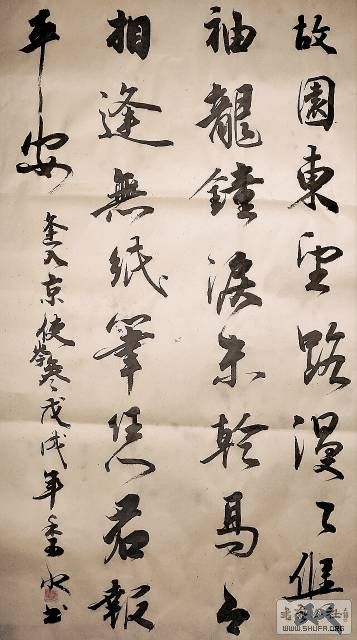 故園東望路漫々雙
袖龍鐘淚未乾馬上
相逢無紙筆憑君報
平安
逢入京使岑參戊戌年水書
WWW.SHUFA.ORG